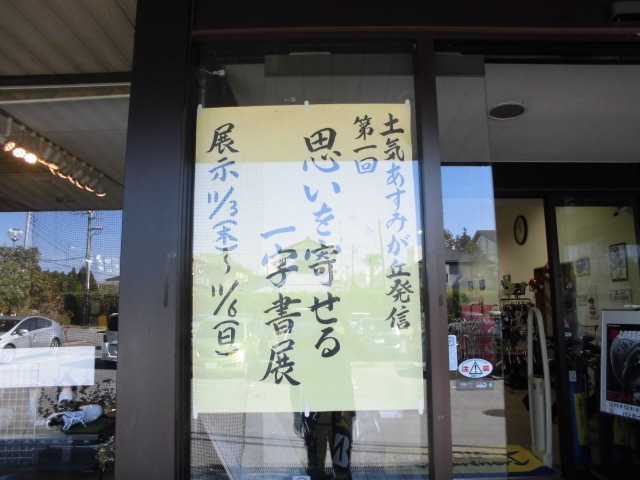 土気あすみが丘発信
第一回
思いを寄せる
一字書展
展示11/3(木)~11/6(日)
注意